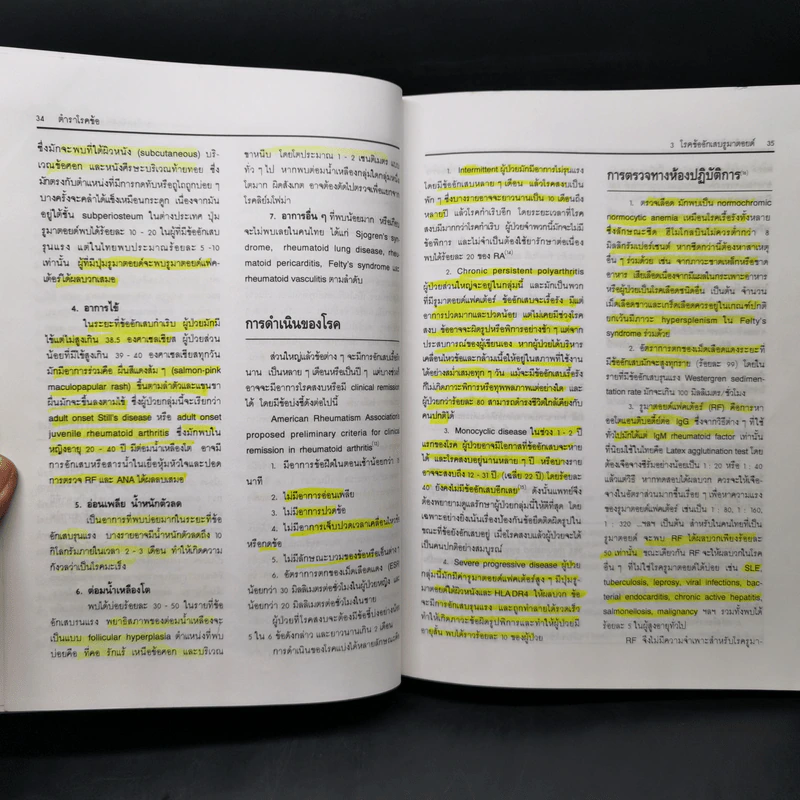 34 ตำราโรคข้อ
ซึ่งมักจะพบที่ใต้ผิวหนัง (subcutaneous) บริ-
เวณข้อศอก และหนังศีรษะบริเวณท้ายทอย ซึ่ง
มักตรงกับตำแหน่งที่มีการกดทับหรือถูไถถูกบ่อย ๆ
บางครั้งจะคลำได้แข็งเหมือนกระดูก เนื่องจากมัน
อยู่ใต้ชั้น subperiosteum ในต่างประเทศ ปุ่ม
รูมาตอยด์พบได้ร้อยละ 10 - 20 ในผู้ที่มีข้ออักเสบ
รุนแรง แต่ในไทยพบประมาณร้อยละ 5 -10
เท่านั้น ผู้ที่มีปุ่มรูมาตอยด์จะพบรูมาตอยด์แฟค-
เต้อร์ได้ผลบวกเสมอ
4. อาการไข้
ในระยะที่ข้ออักเสบกำเริบ ผู้ป่วยมักมี
ไข้แต่ไม่สูงเกิน 38.5 องศาเซลเซียส ผู้ป่วยส่วน
น้อยที่มีไข้สูงเกิน 39 - 40 องศาเซลเซียสทุกวัน
มักมีอาการร่วมคือ ผื่นสีแดงส้มๆ (salmon-pink
maculopapular rash) ขึ้นตามลำตัวและแขนขา
ผื่นมักจะขึ้นลงตามไข้ ซึ่งผู้ป่วยกลุ่มนี้จะเรียกว่า
adult onset Still's disease หรือ adult onset
juvenile rheumatoid arthritis ซึ่งมักพบใน
หญิงอายุ 20 - 40 ปี มีต่อมน้ำเหลืองโต อาจมี
อาการอักเสบหรือสารน้ำในเยื่อหุ้มหัวใจและปอด
การตรวจ RF และ ANA ได้ผลลบเสมอ
5. อ่อนเพลีย น้ำหนักตัวลด
เป็นอาการที่พบบ่อยมากในระยะที่ข้อ
อักเสบรุนแรง บางรายอาจมีน้ำหนักตัวลดถึง 10
กิโลกรัมภายในเวลา 2 - 3 เดือน ทำให้เกิดความ
กังวลว่าเป็นโรคมะเร็ง
6. ต่อมน้ำเหลืองโต
พบได้บ่อยร้อยละ 30 - 50 ในรายที่ข้อ
อักเสบรุนแรง พยาธิสภาพของต่อมน้ำเหลืองจะ
เป็นแบบ follicular hyperplasia ตำแหน่งที่พบ
บ่อยคือ ที่คอ รักแร้ เหนือข้อศอก และบริเวณ
ขาหนีบ โดยโตประมาณ 1 - 2 เซนติเมตร
ทั่ว ๆ ไป หากพบต่อมน้ำเหลืองกลุ่มใดกลุ่มหนึ่ง
โตมาก ผิดสังเกต อาจต้องตัดไปตรวจเพื่อแยกจาก
โรคลิย์มโฟม่า
7. อาการอื่น ๆ ที่พบน้อยมาก หรือเกือบ
จะไม่พบเลยในคนไทย ได้แก่ Sjogren's syn-
drome, rheumatoid lung disease, rheu-
matoid pericarditis, Felty's syndrome และ
rheumatoid vasculitis ตามลำดับ
การดำเนินของโรค
ส่วนใหญ่แล้วข้อต่าง ๆ จะมีการอักเสบเรื้อรัง
นาน เป็นหลาย ๆ เดือนหรือเป็นปี ๆ แต่บางช่วงก็
อาจจะมีอาการโรคสงบหรือมี clinical remission
ได้ โดยมีข้อบ่งชี้ดังต่อไปนี้
American Rheumatism Association's
proposed preliminary criteria for clinical
remission in rheumatoid arthritis
1. มีอาการข้อฝืดในตอนเช้าน้อยกว่า
นาที
2. ไม่มีอาการอ่อนเพลีย
3. ไม่มีอาการปวดข้อ
4. ไม่มีอาการเจ็บปวดเวลาเคลื่อนไหวข้อ
หรือกดข้อ
5. ไม่มีลักษณะบวมของข้อหรือเอ็นต่าง ๆ
6. อัตราการตกของเม็ดเลือดแดง (ESR)
น้อยกว่า 30 มิลลิเมตรต่อชั่วโมงในผู้ป่วยหญิง และ
น้อยกว่า 20 มิลลิเมตรต่อชั่วโมงในชาย
โดยที่ผู้ป่วยจะต้องมีข้อชี้บ่งอย่างน้อย
5 ใน 6 ข้อดังกล่าว และยาวนานเกิน 2 เดือน
การดำเนินของโรคแบ่งได้หลายลักษณะดัง
3 โรคข้ออักเสบรูมาตอยด์ 35
1. Intermittent ผู้ป่วยมักมีอาการไม่รุนแรง
โดยมีข้ออักเสบหลาย ๆ เดือน แล้วโรคสงบเป็น
พัก ๆ ซึ่งบางรายอาจจะยาวนานเป็น 10 เดือนถึง
หลายปี แล้วโรคกำเริบอีก โดยระยะเวลาที่โรค
สงบมีมากกว่าโรคกำเริบ ผู้ป่วยจำพวกนี้มักจะไม่มี
ข้อพิการ และไม่จำเป็นต้องใช้ยารักษาต่อเนื่อง
พบได้ร้อยละ 20 ของ RA
2. Chronic persistent polyarthritis
ผู้ป่วยส่วนใหญ่จะอยู่ในกลุ่มนี้ และมักเป็นพวก
ที่มีรูมาตอยด์แฟคเต้อร์ ข้ออักเสบจะเรื้อรัง มีแต่
อาการปวดมากและปวดน้อย แต่ไม่เคยมีช่วงโรค
สงบ ข้ออาจจะผิดรูปหรือพิการอย่างช้า ๆ แต่จาก
ประสบการณ์ของผู้เขียนเอง หากผู้ป่วยได้บริหาร
เคลื่อนไหวข้อและกล้ามเนื้อให้อยู่ในสภาพที่ใช้งาน
ได้อย่างสม่ำเสมอทุก ๆ วัน แม้จะมีข้ออักเสบเรื้อรัง
ก็ไม่เกิดภาวะพิการหรือทุพพลภาพแต่อย่างใด และ
ผู้ป่วยกว่าร้อยละ 80 สามารถดำรงชีวิตใกล้เคียงกับ
คนปกติได้
3. Monocyclic disease ในช่วง 1 - 2 ปี
แรกของโรค ผู้ป่วยอาจมีโอกาสที่ข้ออักเสบจะหาย
ได้ และโรคสงบอยู่นานหลาย ๆ ปี หรือบางราย
อาจจะสงบถึง 12 - 31 ปี (เฉลี่ย 22 ปี) โดยร้อยละ
40 ยังคงไม่มีข้ออักเสบอีกเลย ดังนั้นแพทย์จึง
ต้องพยายามดูแลรักษาผู้ป่วยกลุ่มนี้ให้ดีที่สุด โดย
เฉพาะอย่างยิ่งเน้นเรื่องป้องกันข้อยึดติดผิดรูปใน
ขณะที่ข้อยังอักเสบอยู่ เมื่อโรคสงบแล้วผู้ป่วยจะได้
เป็นคนปกติอย่างสมบูรณ์
4. Severe progressive disease ผู้ป่วย
กลุ่มนี้มักมีค่ารูมาตอยด์แฟคเต้อร์สูง ๆ มีปุ่มรูมา-
ตอยด์ใต้ผิวหนังและ HLA DR4 ให้ผลบวก ข้อ
จะมีการอักเสบรุนแรง และถูกทำลายได้รวดเร็ว
ทำให้เกิดภาวะข้อผิดรูปพิการและทำให้ผู้ป่วยมี
อายุสั้น พบได้ราวร้อยละ 10 ของผู้ป่วย
การตรวจทางห้องปฏิบัติการ
1. ตรวจเลือด มักพบเป็น normochromic
normocytic anemia เหมือนโรคเรื้อรังทั้งหลาย
ซึ่งลักษณะซีด ฮีโมโกลบินไม่ควรต่ำกว่า 8
มิลลิกรัมเปอร์เซนต์ หากซีดกว่านี้ต้องหาสาเหตุ
อื่น ๆ ร่วมด้วย เช่น จากภาวะขาดเหล็กหรือขาด
อาหาร เสียเลือดเนื่องจากมีแผลในกระเพาะอาหาร
หรือผู้ป่วยเป็นโรคเลือดชนิดอื่น เป็นต้น จำนวน
เม็ดเลือดขาวและเกร็ดเลือดควรอยู่ในเกณฑ์ปกติ
ยกเว้นมีภาวะ hypersplenism ใน Felty's
syndrome ร่วมด้วย
2. อัตราการตกของเม็ดเลือดแดงระยะที่
มีข้ออักเสบมักจะสูงทุกราย (ร้อยละ 99) โดยใน
รายที่มีข้ออักเสบรุนแรง Westergren sedimen-
tation rate มักจะเกิน 100 มิลลิเมตร/ชั่วโมง
3. รูมาตอยด์แฟคเต้อร์ (RF) คือการหา
ออโตแอนติบอดี้ต่อ IgG ซึ่งจากวิธีต่าง ๆ ที่ใช้
ทั่วไปมักได้แก่ IgM rheumatoid factor เท่านั้น
ที่นิยมใช้ในไทยคือ Latex agglutination test โดย
ต้องเจือจางซีรั่มอย่างน้อยเป็น 1 : 20 หรือ 1 : 40
แล้วแต่วิธี หากทดสอบได้ผลบวก ควรจะให้เจือ-
จางในอัตราส่วนมากขึ้นเรื่อย ๆ เพื่อหาความแรง
ของรูมาตอยด์แฟคเต้อร์ เช่นเป็น 1 : 80, 1 : 160,
1 : 320 ...ฯลฯ เป็นต้น สำหรับในคนไทยที่เป็น
รูมาตอยด์ จะพบ RF ได้ผลบวกเพียงร้อยละ
50 เท่านั้น ขณะเดียวกัน RF จะให้ผลบวกในโรค
อื่น ๆ ที่ไม่ใช่โรครูมาตอยด์ได้บ่อย เช่น SLE,
tuberculosis, leprosy, viral infections, bac-
terial endocarditis, chronic active hepatitis,
salmonellosis, malignancy ฯลฯ รวมทั้งพบได้
ร้อยละ 5 ในผู้สูงอายุทั่วไป
RF จึงไม่มีความจำเพาะสำหรับโรครูมา-